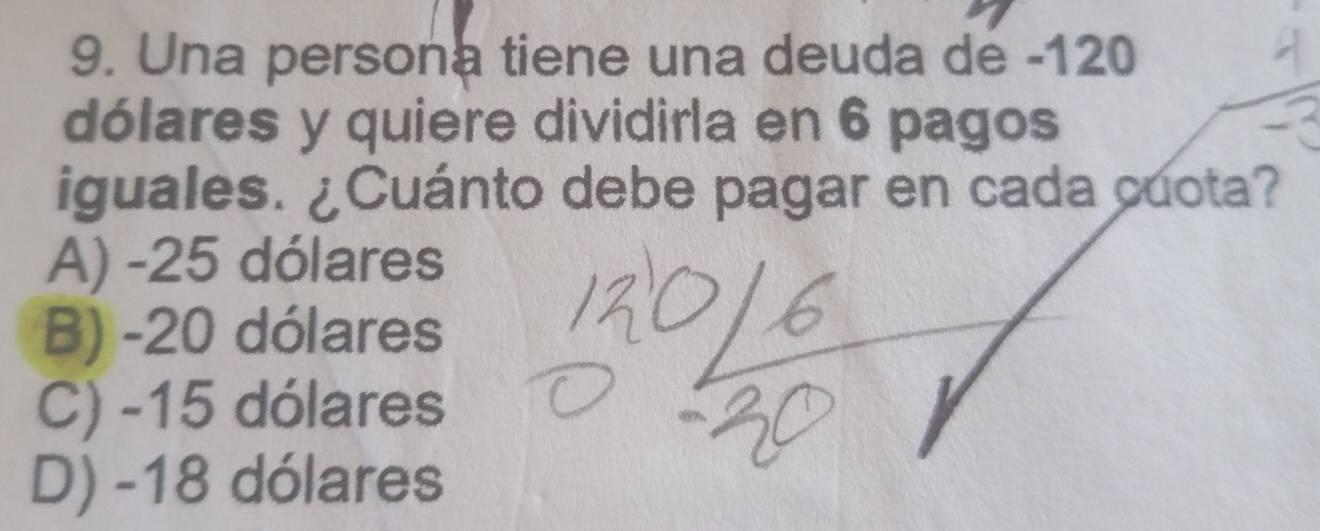 9. Una persona tiene una deuda de -120
dólares y quiere dividirla en 6 pagos
iguales. ¿Cuánto debe pagar en cada cuota?
A) -25 dólares
B) -20 dólares
C) -15 dólares
D) -18 dólares
120 / 6
0 -20
4
-3